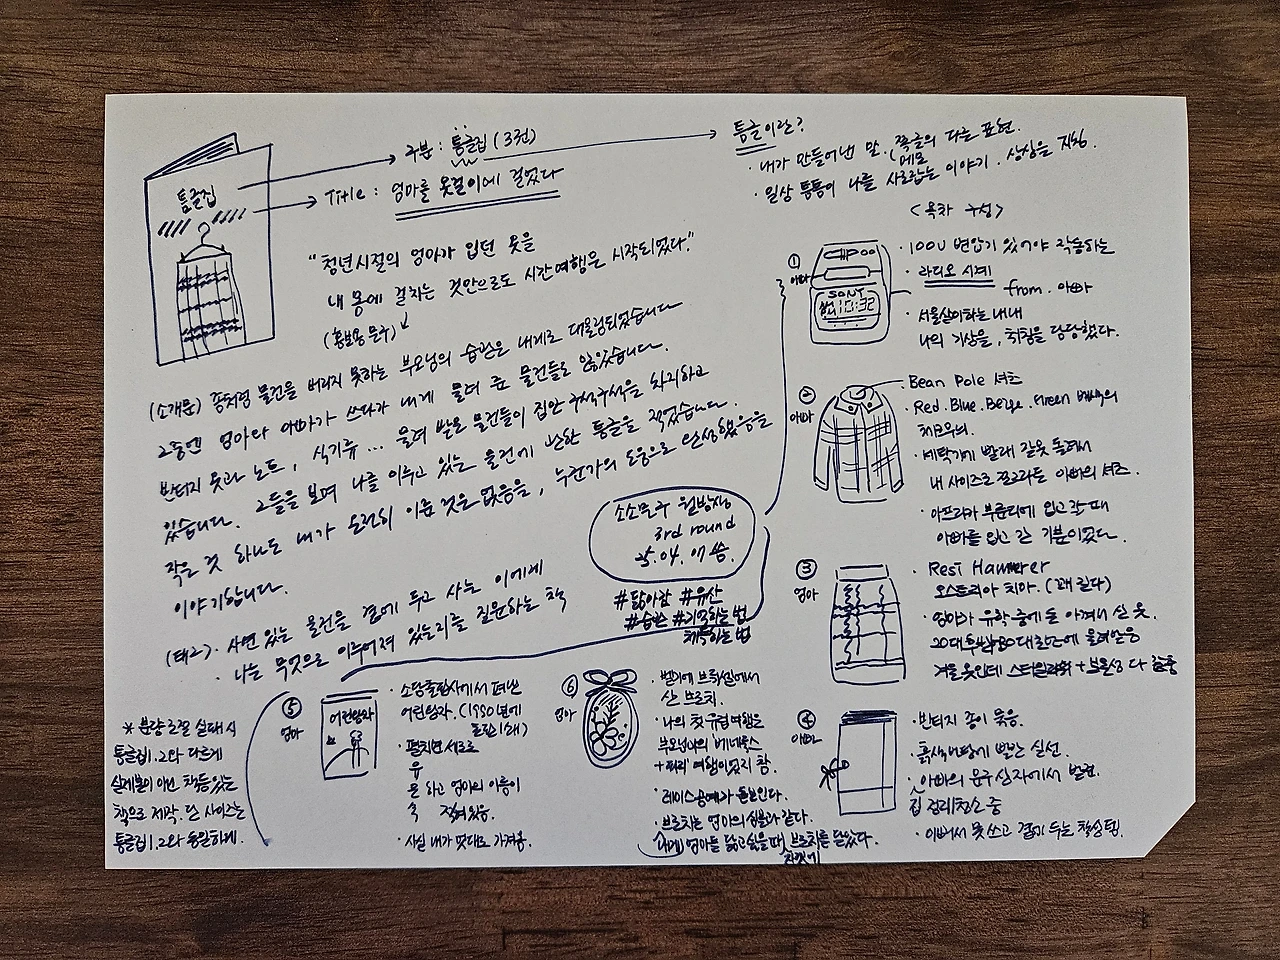 통글집
구분 : 통글집 (3권)
Title : 엄마를 옷걸이에 걸었다
통글이란?
· 내가 만들어낸 말. (쪽글의 다른 표현.
메모
· 일상 통틀어 나를 사로잡는 이야기 · 상상을 지칭.
"청년시절의 엄마가 입던 옷을
내 몸에 걸치는 것만으로도 시간여행은 시작되었다."
(홍보용 문구)
(소개문) 좀처럼 물건을 버리지 못하는 부모님의 습관은 내게로 대물림되었습니다
그중엔 엄마와 아빠가 쓰다가 내게 물려 준 물건들도 많았습니다.
빈티지 옷과 노트, 식기류 ... 물려 받은 물건들이 집안 구석구석을 차지하고
있습니다. 그들을 보며 나를 이루고 있는 물건에 관한 통글을 적었습니다.
작은 것 하나도 내가 온전히 이룬 것은 없음을, 누군가의 도움으로 완성했음을
이야기합니다.
(태그). 사연 있는 물건을 곁에 두고 사는 이에게
· 나는 무엇으로 이루어져 있는지를 질문하는 책
소소문구 월방장
3rd round
25.04.07 씀.
#닮아감 #유산
#습관 #기록하는 법
<목차 구성>
① 아빠
SONY
10:32
· 100V 변압기 있어야 작동하는
· 라디오 시계
from. 아빠
· 서울살이하는 내내
나의 기상을, 취침을 담당했다.
② 아빠
Bean Pole 셔츠
· Red. Blue. Beige. Green 배색의
체크무늬.
· 세탁기에 빨래 잘못 돌려서
내 사이즈로 쪼그라든 아빠의 셔츠.
· 아프리카 부룬디에 입고 갔을 때
아빠를 입고 간 기분이었다.
③ 엄마
· Rest Hammerer
오스트리아 치마. (꽤 길다)
· 엄마가 유학 중에도 아껴서 산 옷.
겨울 옷인데 스타일리쉬 + 보온성 다 갖춤
④ 아빠
· 빈티지 종이 묶음.
· 흑심색 바탕에 빨간 실선.
· 아빠의 문구 상자에서 발견.
집 정리청소 중
· 아까워서 못 쓰고 곁에 두는 찰싹템.
⑤ 엄마
어린왕자
· 소담출판사에서 펴낸
어린왕자. (1990년에
· 펼치면 세로로
유
은 하고 엄마의 이름이
숙 적혀있음.
· 사실 내가 멋대로 가져옴.
⑥ 엄마
· 벨기에 브뤼셀에서
산 브로치.
· 나의 첫 유럽여행은
부모님과의 베네룩스
+ 파리 여행이었지 참.
· 레이스공예가 돋보인다.
· 브로치는 엄마의 심볼과 같다.
내게 엄마를 닮고 싶을 때 브로치를 달았다.
자켓에
* 분량 조절 실패 시
통글집1.2와 다르게
실제본이 아닌 책등있는
책으로 제작. 단 사이즈는
통글집1.2와 동일하게.